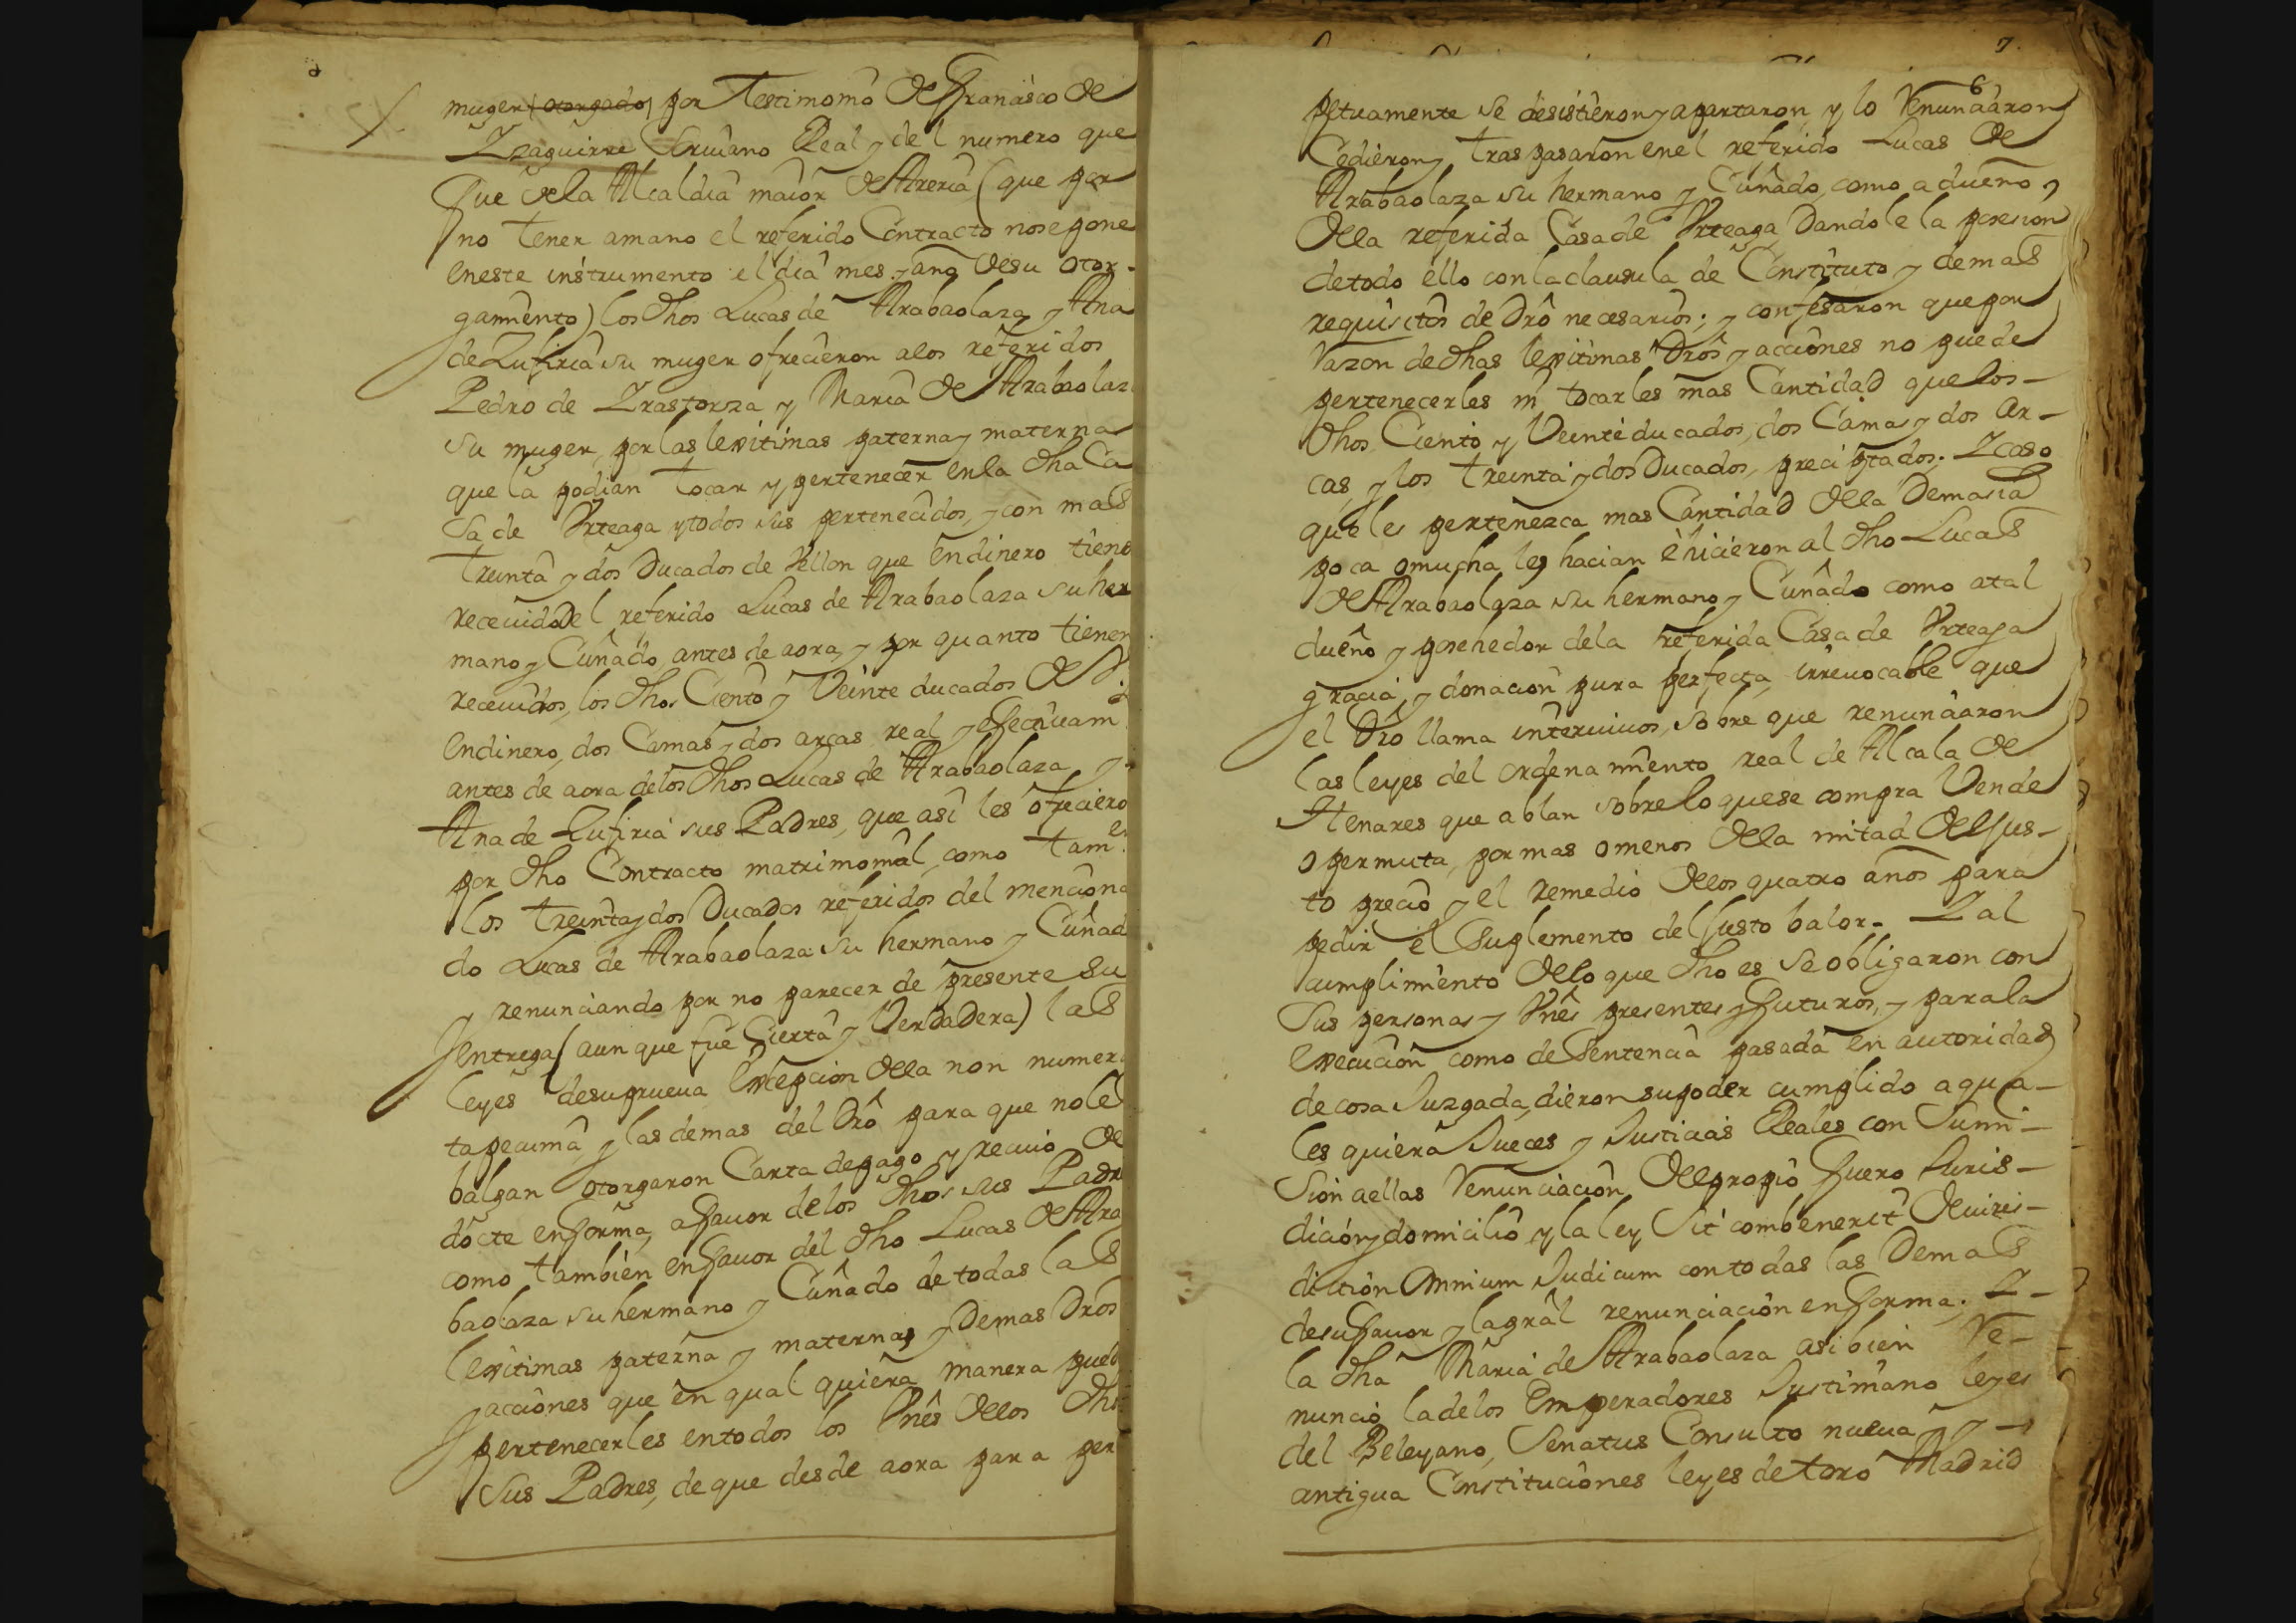 muger (otorgado) por Testimonio de Francisco de
Yzaguirre Escriuano Real y del numero que
fue de la Alcaldia maior de Areria (que por
no tener amano el referido Contracto nosepone
eneste instrumento el dia mes y año desu otor-
gamiento) los dhos Lucas de Arabaolaza y Ana
de Zufiria su muger ofrecieron alos referidos
Pedro de Yrastorza y Maria de Arabaolaz
su muger, por las lexitimas paterna y materna
que la podian tocar y pertenecer enla dha Ca
sa de Vrteaga y todos sus pertenecidos, y con mas
treinta y dos Ducados de Vellon que endinero tiene
receuido del referido Lucas de Arabaolaza suher
mano y Cuñado, antes de aora, y por quanto tienen
receuidos, los dhos Ciento y Veinte ducados de V.
endinero, dos Camas y dos arcas, real y efectiuam
antes de aora delos dhos Lucas de Arabaolaza y
Ana de Zufiria sus Padres, que asi les ofreciero
por dho Contracto matrimonial, como tam
los treintaydos Ducados referidos del menciona
do Lucas de Arabaolaza su hermano y Cuñad
y renunciando por no parecer de presente su
entrega (aun que fue Cierta y Verdadera) las
leyes desuprueua Excepcion dela non numer
tapecunia, y las demas del dro para que noles
balgan otorgaron Carta depago y reciuio de
docte enforma, afauor delos dhos sus Padr
como tambien enfauor del dho Lucas de Ara
baolaza suhermano y Cuñado de todas las
lexitimas paterna y materna, y Demas Dros
y acciones que en qual quiera manera pued
pertenecerles entodos los Vnes delos dho
sus Padres, de que desde aora para per
7.
6
petuamente se desistieron y apartaron, y lo Renunciaron
Cedieron y traspasaron enel referido Lucas de
Arabaolaza su hermano y Cuñado, como a dueño,
dela referida Casa de Vrteaga Dandole la posesion
detodo ello conlaclausula de Constituto y demas
requisitos de Dro necesarios; y confesaron quepor
Razon dedhas lexitimas Dros y acciones no puede
pertenecerles ni tocarles mas Cantidad quelos-
dhos, Ciento y Veinte ducados, dos Camas y dos ar-
cas, y los treinta y dos Ducados, precitados; Ycaso
queles pertenezca mas Cantidad dela Demasia
poca omucha les hacian ehicieron al dho Lucas
de Arabaolaza su hermano y Cuñado como atal
dueño y posehedor dela referida Casa de Vrteaga
gracia, y donacion pura perfecta, irreuocable que
el Dro llama interuiuos, sobre que renunciaron
las leyes del ordenamiento real de Alcala de
Henares que ablan sobrelo quese compra Vende
o permuta, por mas omenos dela mitad deljus-
to precio y el remedio delos quatro años para
pedir el Suplemento deljusto balor. Y al
cumplimiento delo que dho es se obligaron con
sus personas y Vnes presentes y futuros, y parala
execucion como de Sentencia pasada en autoridad
decosa Juzgada, dieron supoder cumplido a qua-
les quiera Jueces y Justicias Reales con Sumi-
sion aellas Renunciacion delpropio fuero Juris-
dicion y domicilio y la ley Sit combenerit deiuris-
diction omnium Judicum contodas las Demas
desufauor y lagral renunciacion enforma; Y-
la dha Maria de Arabaolaza asi bien Re-
nuncio ladelos Emperadores Justiniano leyes
del Beleyano, Senatus Consulto nueua y
antigua Constituciones leyes de toro Madrid